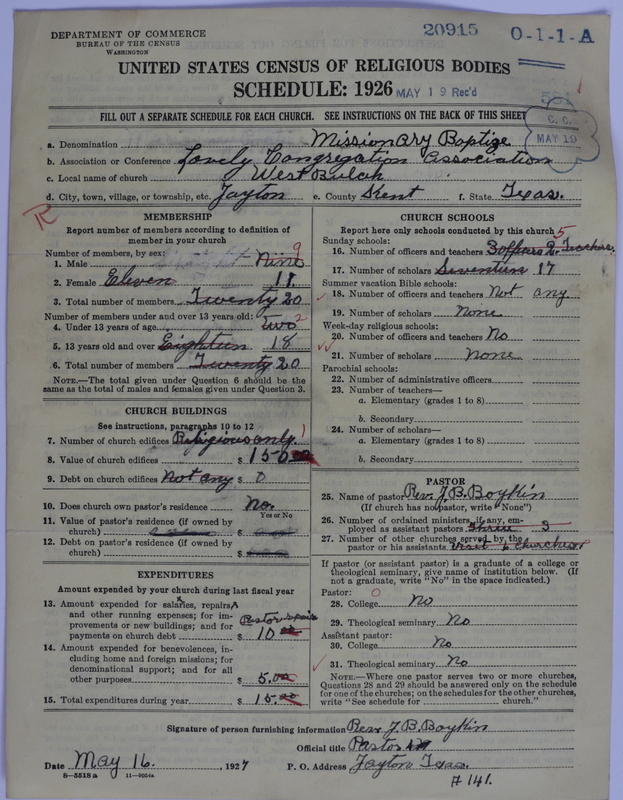 DEPARTMENT OF COMMERCE
BUREAU OF THE CENSUS
WASHINGTON
20915 O-1-1-A
UNITED STATES CENSUS OF RELIGIOUS BODIES
SCHEDULE: 1926 MAY 19 Rec'd
FILL OUT A SEPARATE SCHEDULE FOR EACH CHURCH. SEE INSTRUCTIONS ON THE BACK OF THIS SHEET
C. C.
MAY 19
a. Denomination Missionary Baptize
b. Association or Conference Lovely Congregation Association
c. Local name of church West Bulah
d. City, town, village, or township, etc. Jayton e. County Kent f. State Texas.
MEMBERSHIP
Report number of members according to definition of
member in your church
Number of members, by sex:
1. Male Nine 9
2. Female Eleven 11
3. Total number of members Twenty 20
Number of members under and over 13 years old:
4. Under 13 years of age two 2
5. 13 years old and over Eighteen 18
6. Total number of members Twenty 20
NOTE.—The total given under Question 6 should be the
same as the total of males and females given under Question 3.
CHURCH BUILDINGS
See instructions, paragraphs 10 to 12
7. Number of church edifices Religious only. 1
8. Value of church edifices $ 150.00
9. Debt on church edifices Not any $ 0
10. Does church own pastor's residence No.
Yes or No
11. Value of pastor's residence (if owned by
church) $
12. Debt on pastor's residence (if owned by
church) $
EXPENDITURES
Amount expended by your church during last fiscal year
13. Amount expended for salaries, repairs
and other running expenses; for im-
provements or new buildings; and for
payments on church debt $ 10 00
14. Amount expended for benevolences, in-
cluding home and foreign missions; for
denominational support; and for all
other purposes $ 5.00
15. Total expenditures during year $ 15.00
CHURCH SCHOOLS
Report here only schools conducted by this church
Sunday schools: 5
16. Number of officers and teachers 3 officers 2. Teachers.
17. Number of scholars Seventeen 17
Summer vacation Bible schools:
18. Number of officers and teachers Not any
19. Number of scholars None
Week-day religious schools:
20. Number of officers and teachers No
21. Number of scholars None
Parochial schools:
22. Number of administrative officers
23. Number of teachers—
a. Elementary (grades 1 to 8)
b. Secondary
24. Number of scholars—
a. Elementary (grades 1 to 8)
b. Secondary
PASTOR
25. Name of pastor Rev. J. B. Boykin
(If church has no pastor, write "None")
26. Number of ordained ministers, if any, em-
ployed as assistant pastors three 3
27. Number of other churches served by the
pastor or his assistants visit churches
If pastor (or assistant pastor) is a graduate of a college or
theological seminary, give name of institution below. (If
not a graduate, write "No" in the space indicated.)
Pastor: O
28. College No
29. Theological seminary No
Assistant pastor:
30. College No
31. Theological seminary No
NOTE.—Where one pastor serves two or more churches,
Questions 28 and 29 should be answered only on the schedule
for one of the churches; on the schedules for the other churches,
write "See schedule for church."
Signature of person furnishing information Rev. J. B. Boykin
Official title Pastor
Date May 16, 1927 P. O. Address Jayton Texas.
8-5518a 11-9054a
# 141.